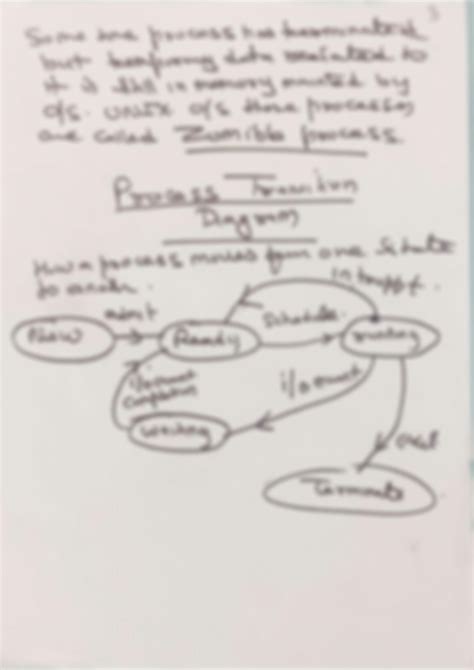 3
Some one process has terminated
but temporary data related to
it is still in memory mounted by
O/S. UNIX O/S these processes
are called Zombie process
Process Transition
Diagram
How a process moves from one State
to another.
Interrupt.
admit
Schedule
New
Ready
running
i/o event
completion
i/o event
waiting
exit
Terminate